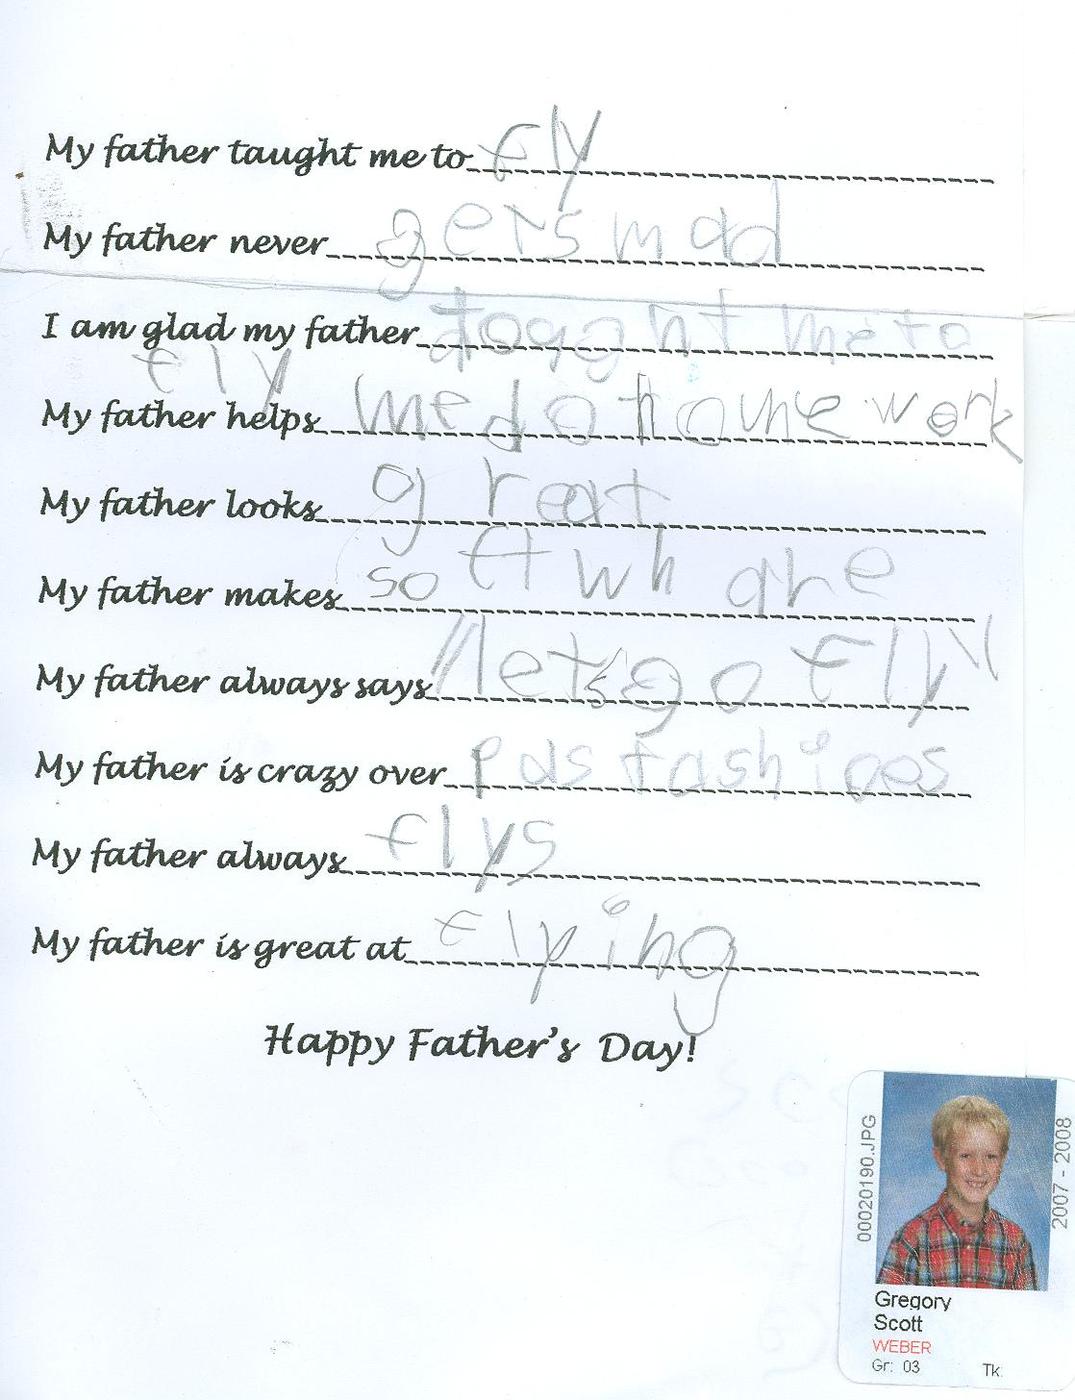 My father taught me to fly
My father never gets mad
I am glad my father toaght me to
fly
My father helps me do home work
My father looks great
My father makes soft whare
My father always says "lets go fly"
My father is crazy over pas fashioes
My father always flys
My father is great at flying
Happy Father's Day!
00020190.JPG
2007 - 2008
Gregory
Scott
WEBER
Gr: 03 Tk: